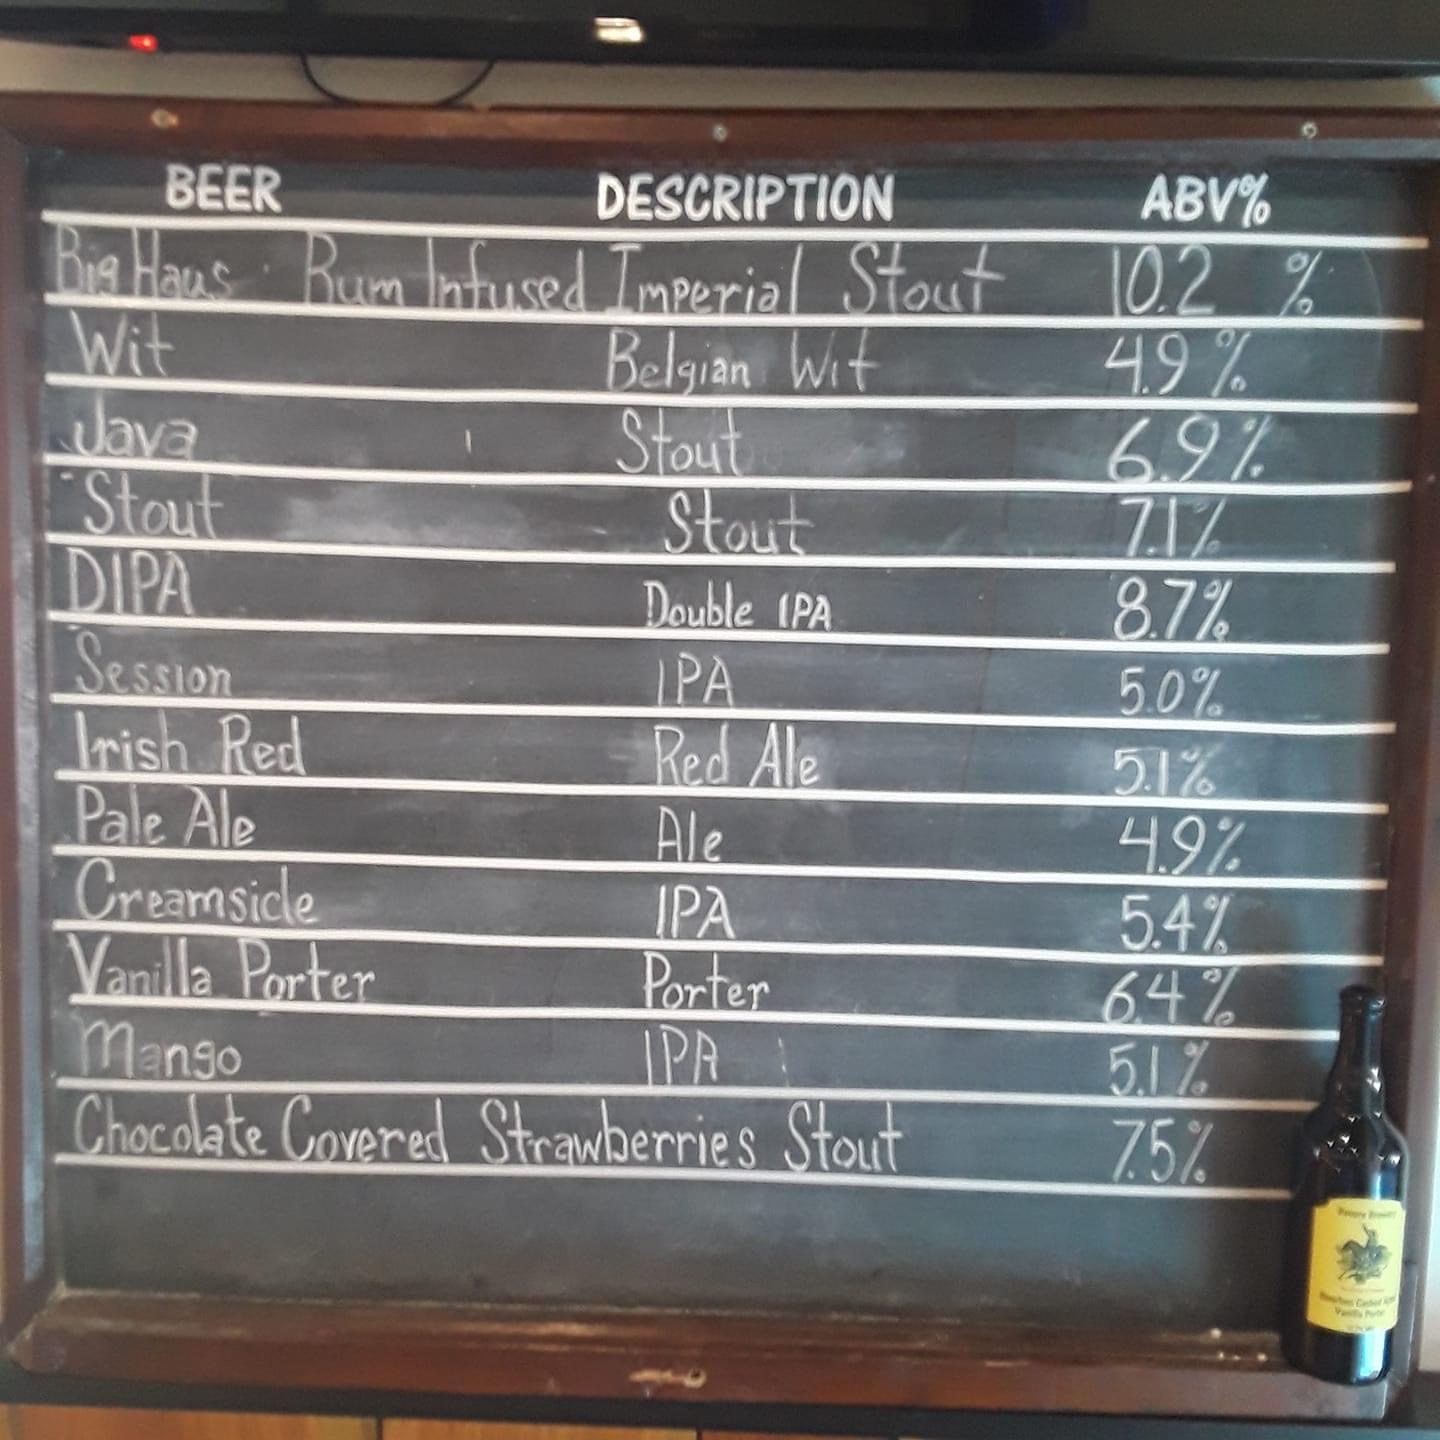 BEER DESCRIPTION ABV%
Big Haus Rum Infused Imperial Stout 10.2 %
Wit Belgian Wit 4.9%
Java Stout 6.9%
Stout Stout 7.1%
DIPA Double IPA 8.7%
Session IPA 5.0%
Irish Red Red Ale 5.1%
Pale Ale Ale 4.9%
Creamsicle IPA 5.4%
Vanilla Porter Porter 6.4%
Mango IPA 5.1%
Chocolate Covered Strawberries Stout 7.5%
Brewery
Bourbon
Vanilla Porter